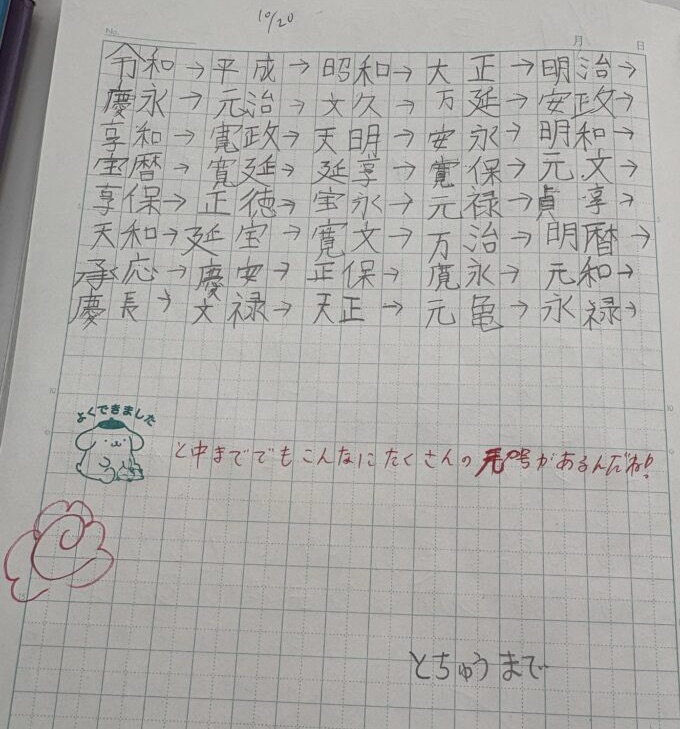 10/20
No.
月 日
令和→平成→昭和→大正→明治→
慶永→元治→文久→万延→安政→
享和→寛政→天明→安永→明和→
宝暦→寛延→延享→寛保→元文→
享保→正徳→宝永→元禄→貞享→
天和→延宝→寛文→万治→明暦→
承応→慶安→正保→寛永→元和→
慶長→文禄→天正→元亀→永禄→
よくできました
と中まででもこんなにたくさんの元号があるんだね!
とちゅうまで